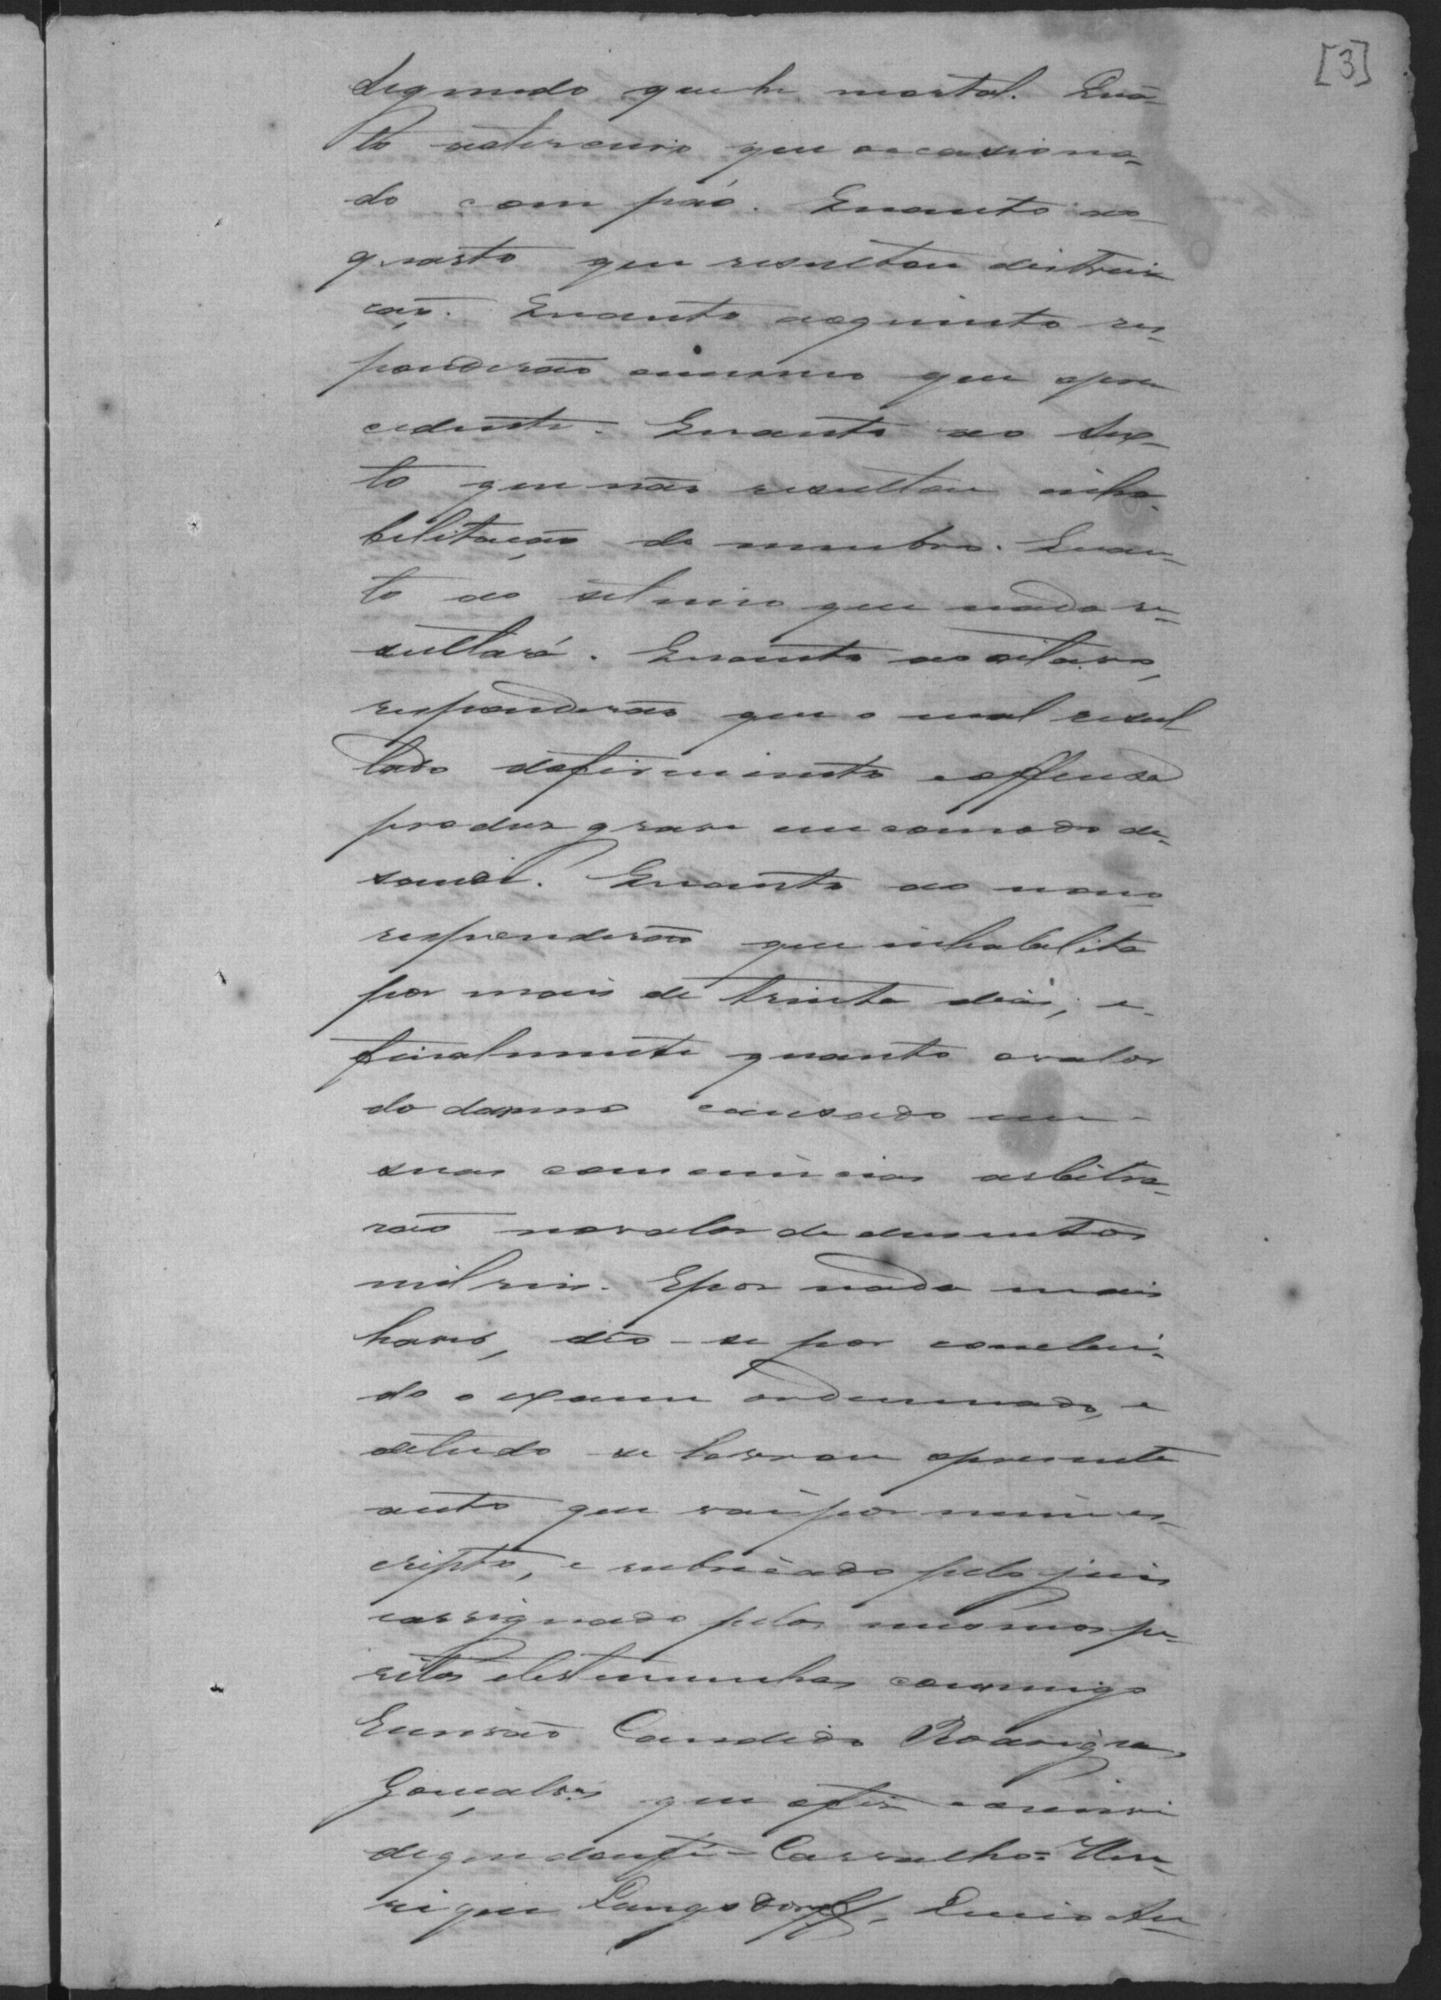 [3]
Segundo que he mortal. Quā-
to aoterceiro que occasiona-
do com páo. Quanto ao
quarto que resultou distrui
ção. Quanto aoquinto res-
ponderão omesmo que opre
cedente. Quanto ao sex-
to que não resultou inha-
bilitação de membro. Quan-
to ao setimo que nada re-
sultará. Quanto ao oitavo,
responderão que o mal resul
tado doferimento e offensa
produz grave encommodo de
saude. Quanto ao nono
responderão que inhabilita
por mais de trinta dias, e
finalmente quanto ovalor
do damno causado em
suas conciencias arbitra-
rão novalor de dusentos
mil reis. Epor nada mais
haver, deo-se por conclui-
do o exame ordennado, e
detudo se lavrou opresente
auto que vai por mim es-
cripto, e rubricado pelo juis
eassignado pelos mesmos pe-
ritos etestemunhas commigo
Escrivão Candido Rodrigues
Gonçalves que ofiz e escrevi
dequedoufé = Carvalho = Hen-
rique Langsdorff,